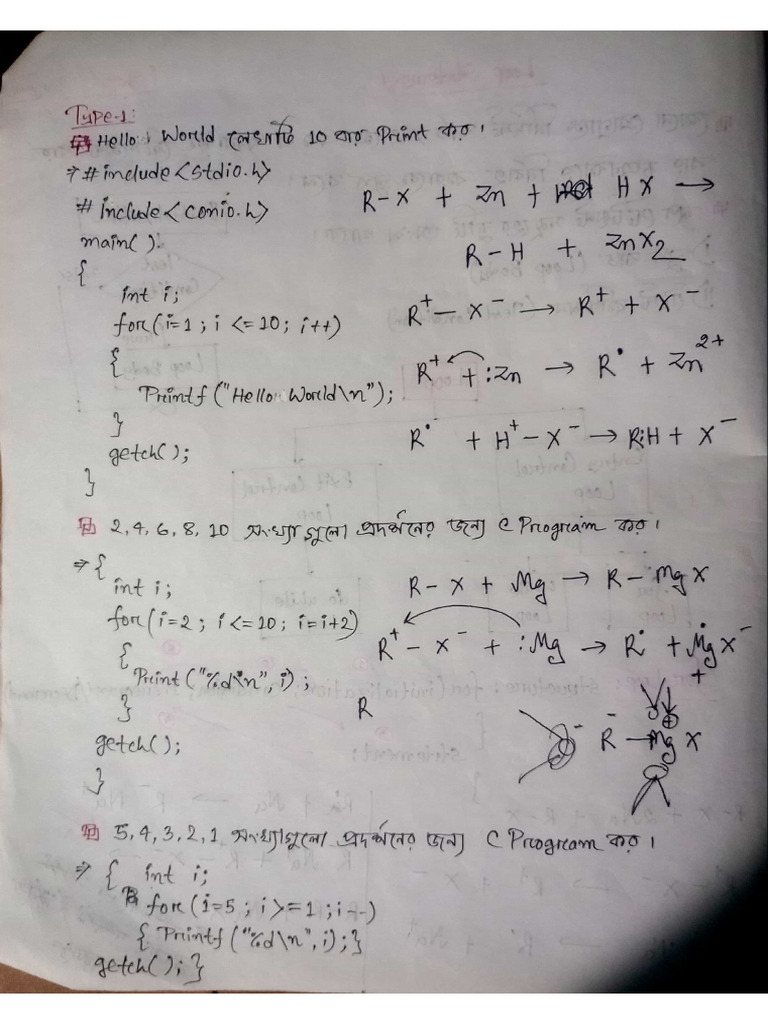 Type-1:
Hello World লেখাটি 10 বার Print কর।
⇒ #include<stdio.h>
#include<conio.h>
main()
{
int i;
for(i=1; i<=10; i++)
{
Printf("Hello World\n");
}
getch();
}
R-X + Zn + HX →
R-H + ZnX2
R+ - X- → R+ + X-
R+ + :Zn → R• + Zn2+
R• + H+ - X- → R:H + X-
2, 4, 6, 8, 10 সংখ্যাগুলো প্রদর্শনের জন্য C Program কর।
⇒ {
int i;
for(i=2; i<=10; i=i+2)
{
Print("%d\n", i);
}
getch();
}
R-X + Mg → R-MgX
R+ - X- + :Mg → R• + MgX-
+
R
- R- - Mg X
5, 4, 3, 2, 1 সংখ্যাগুলো প্রদর্শনের জন্য C Program কর।
⇒ { int i;
for(i=5; i>=1; i--)
{ Printf("%d\n", i);}
getch(); }